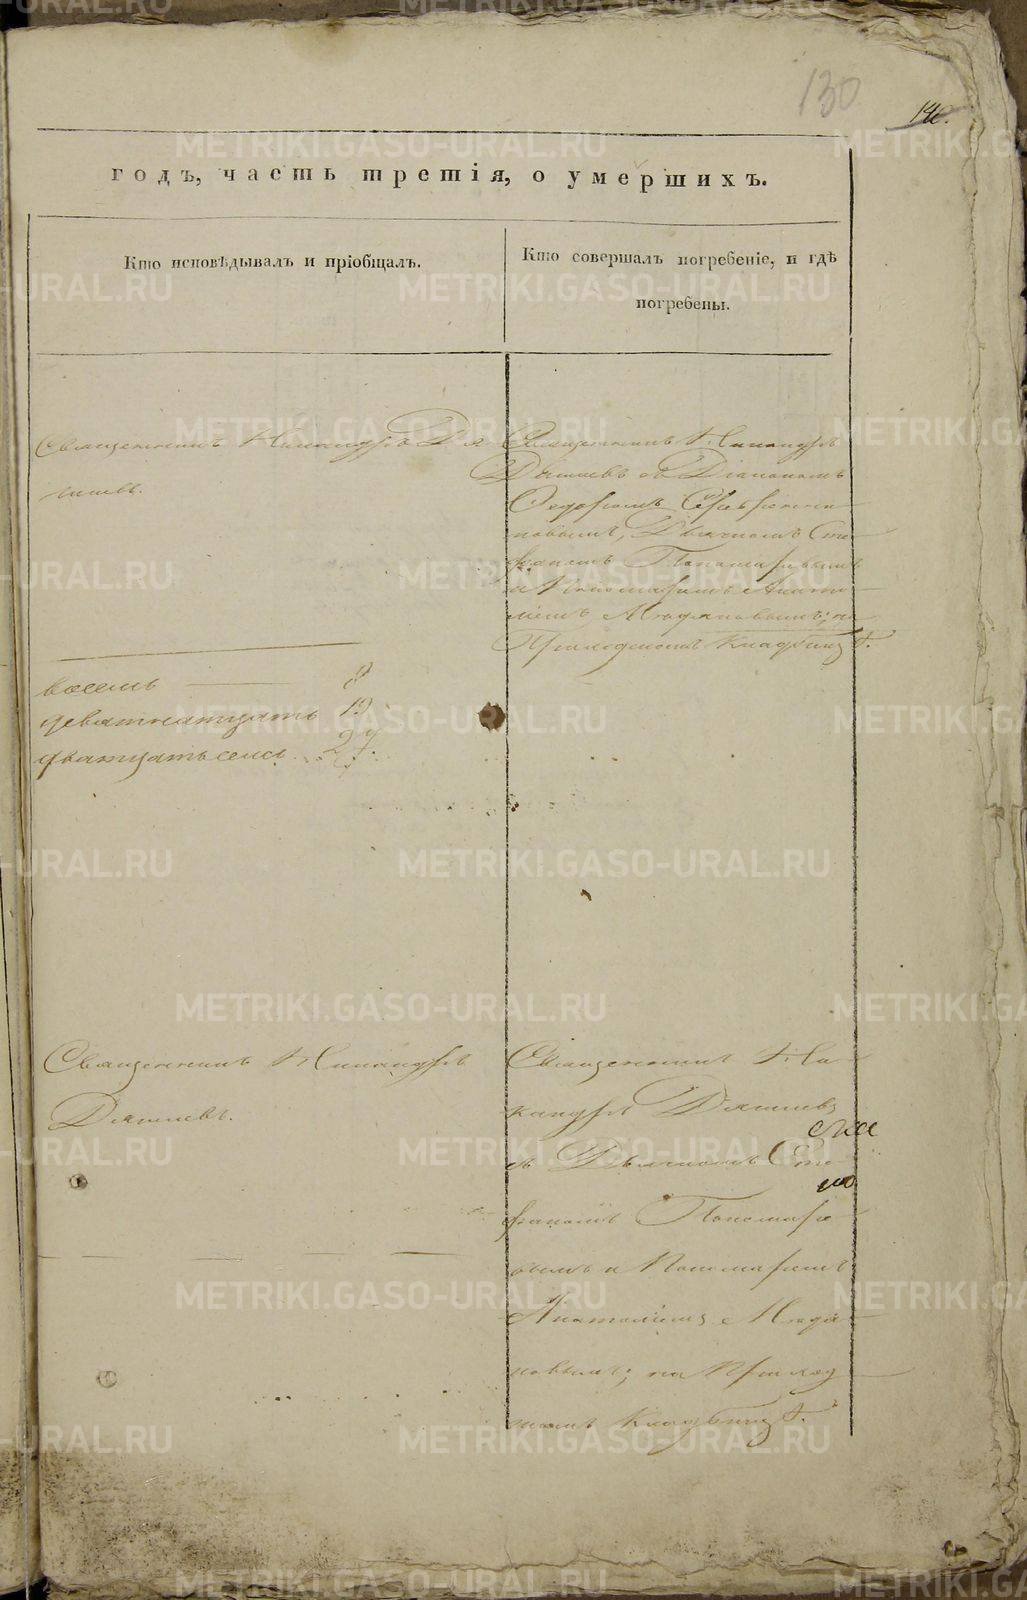 130
140.
годъ, часть третія, о умершихъ.
Кто исповѣдывалъ и пріобщалъ.
Кто совершалъ погребеніе, и гдѣ
погребены.
Священникъ Никандръ Дя-
гилевъ.
Священникъ Никандръ
Дягилевъ съ Діакономъ
Ѳедоромъ
новымъ, Дьячкомъ Сте-
фаномъ Пономаревымъ
и Пономаремъ Анато-
ліемъ на
Приходскомъ Кладбищѣ.
восемь 8
девятнатцать 19
дватцать семь 27.
Священникъ Никандръ
Дягилевъ.
Священникъ Ни-
кандръ Дягилевъ
съ Дьячкомъ Сте-
фаномъ Пономаре-
вымъ и Пономаремъ
Анатоліемъ
новымъ; на Приход
скомъ Кладбищѣ.
METRIKI.GASO-URAL.RU